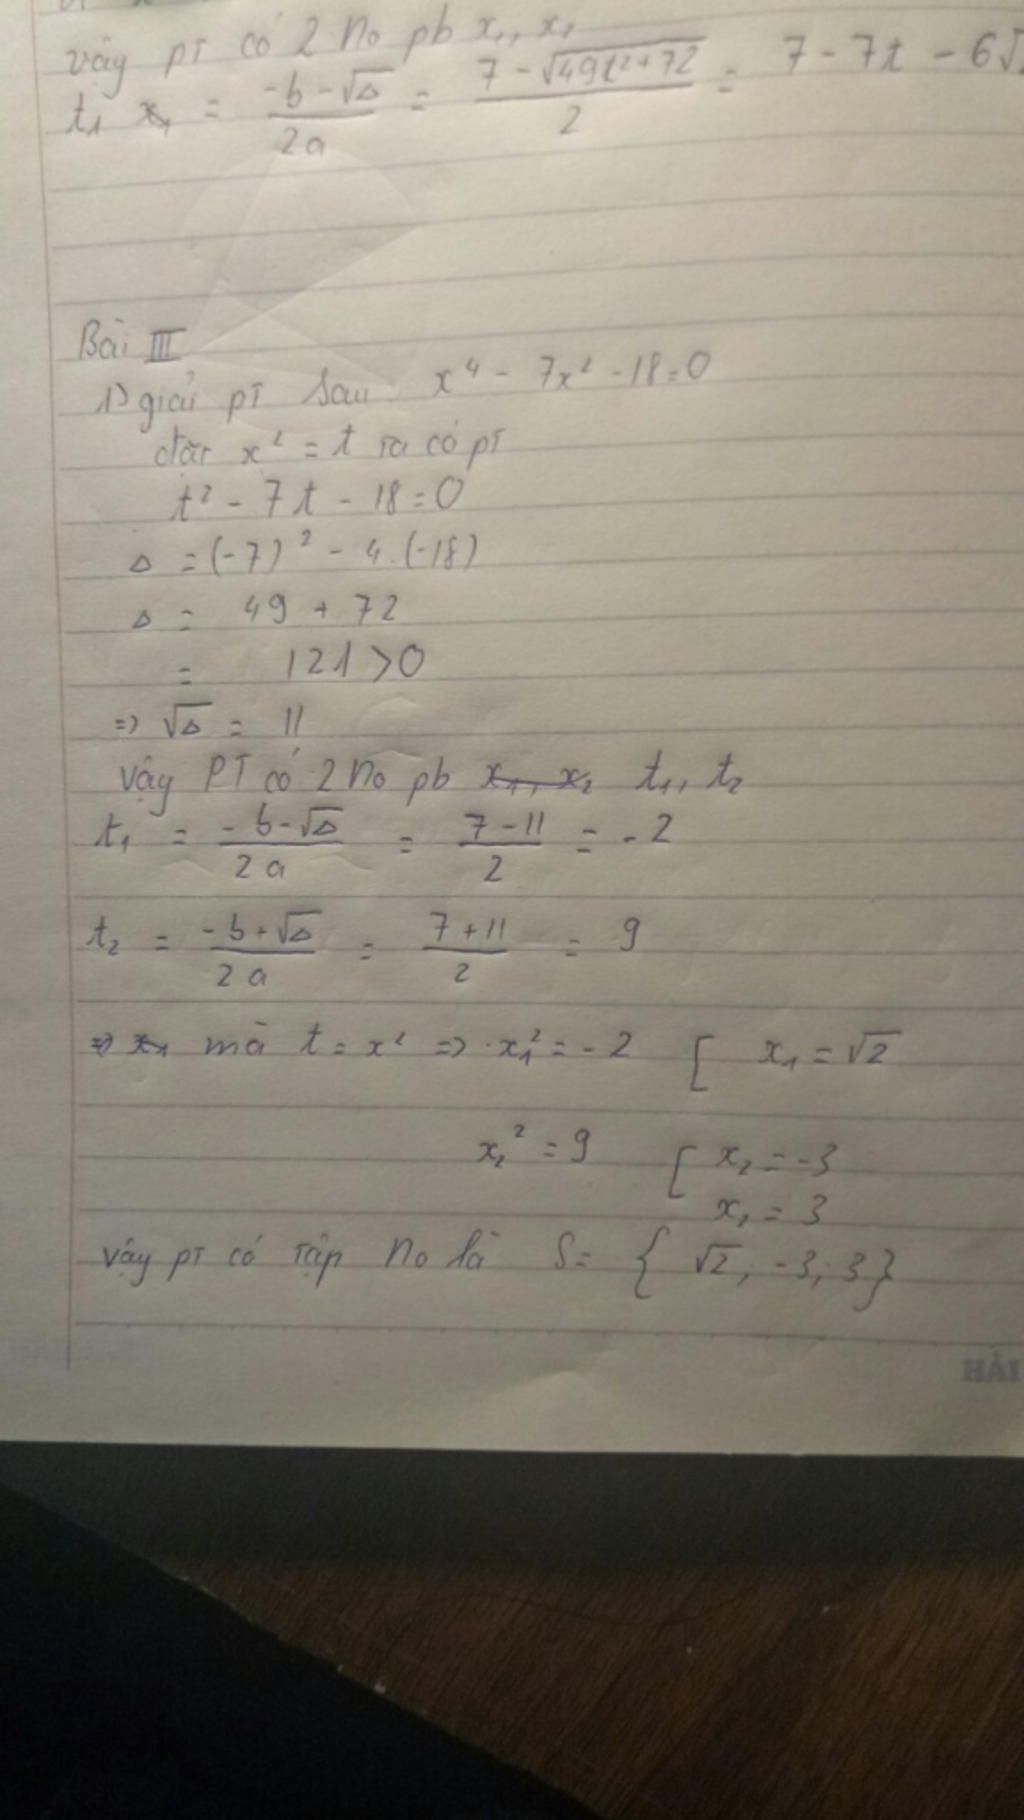 vậy pT có 2 no pb x₁, x₂
t₁ x₁ = (-b - √Δ)/2a = (7 - √49t²+72)/2 = 7 - 7t - 6√
Bài III
1) giải pT sau: x⁴ - 7x² - 18 = 0
đặt x² = t ta có pT
t² - 7t - 18 = 0
Δ = (-7)² - 4.(-18)
Δ = 49 + 72
= 121 > 0
=> √Δ = 11
vậy PT có 2 no pb x₁, x₂ t₁, t₂
t₁ = (-b - √Δ)/2a = (7 - 11)/2 = -2
t₂ = (-b + √Δ)/2a = (7 + 11)/2 = 9
=> x₁ mà t = x² => x₁² = -2 [ x₁ = √2
x₂² = 9 [ x₂ = -3
x₂ = 3
vậy pT có tập no là S = { √2; -3; 3}
HẢI